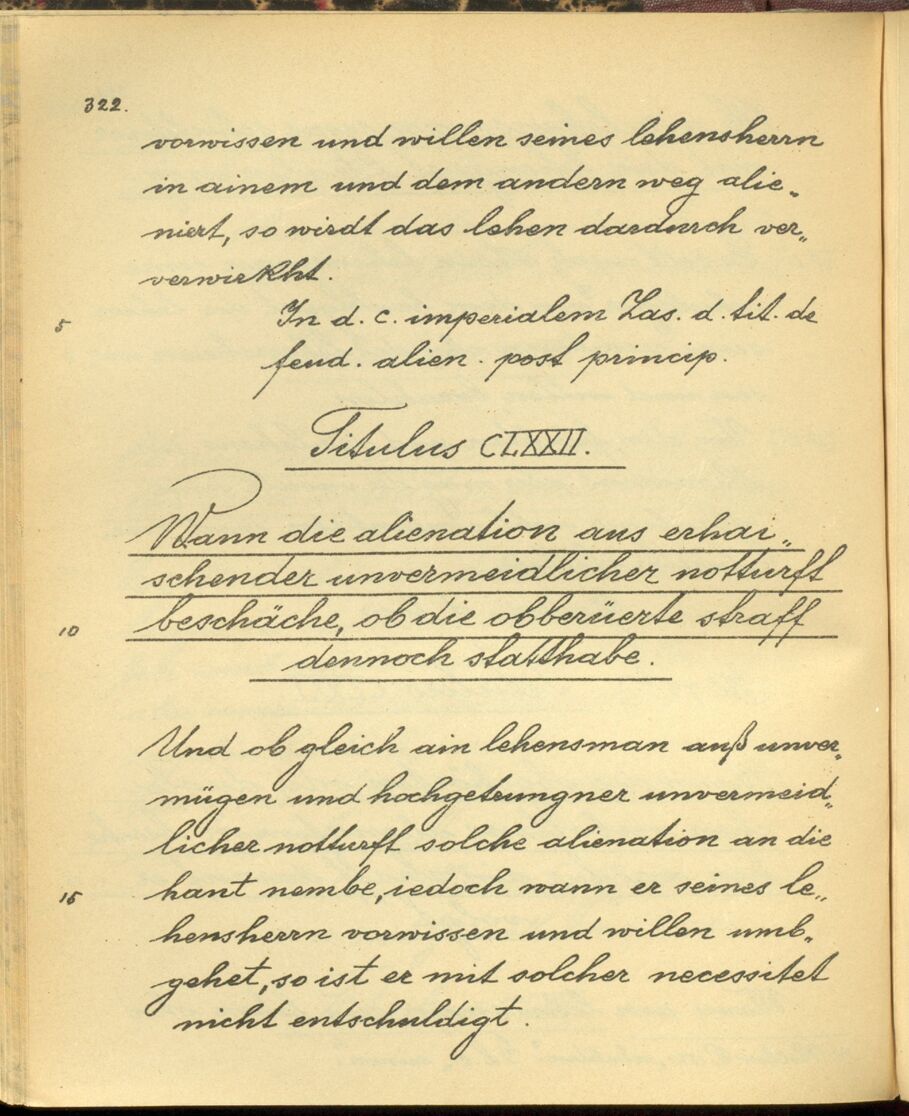 322.
vorwissen und willen seines lehensherrn
in ainem und dem andern weg alie„
niert, so wirdt das lehen dardurch ver„
verwirkht.
5
In d. c. imperialem Zas. d. tit. de
feud. alien. post princip.
Titulus CLXXII.
Wann die alienation aus erhai„
schender unvermeidlicher notturft
10
beschäche, ob die obberüerte straff
dennoch statthabe.
Und ob gleich ain lehensman auß unver„
mügen und hochgetrungner unvermeid„
licher notturft solche alienation an die
15
hant nembe, iedoch wann er seines le„
hensherrn vorwissen und willen umb„
gehet, so ist er mit solcher necessitet
nicht entschuldigt.